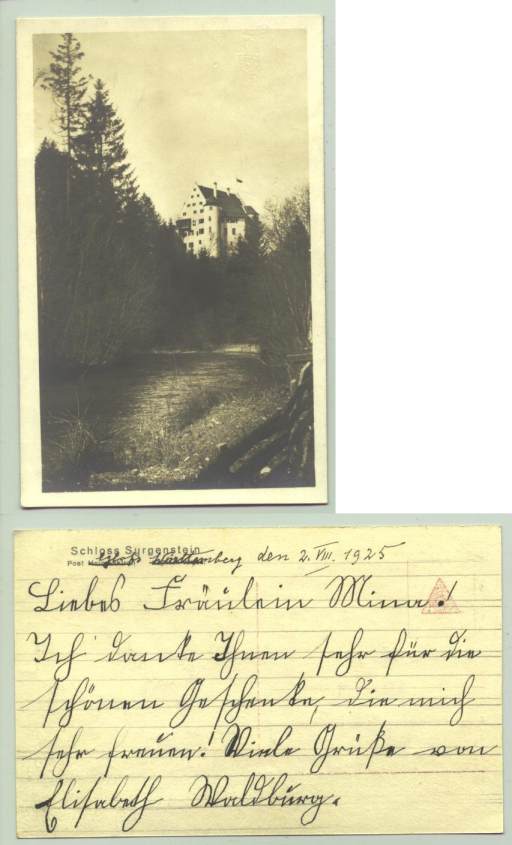 Schloss Surgenstein
Post
den 2. VIII. 1925
Liebes Fräulein Mina!
Ich danke Ihnen sehr für die
schönen Geschenke, die mich
sehr freuen! Viele Grüße von
Elisabeth Waldburg.